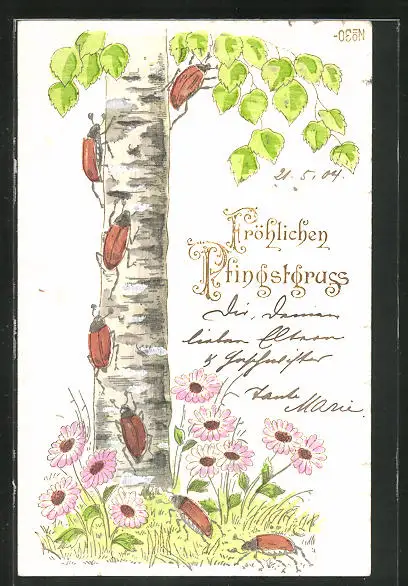 21. 5. 04.
Fröhlichen
Pfingstgruss
Dir, Deinen
lieben Eltern
& Geschwister
Tante
Marie.